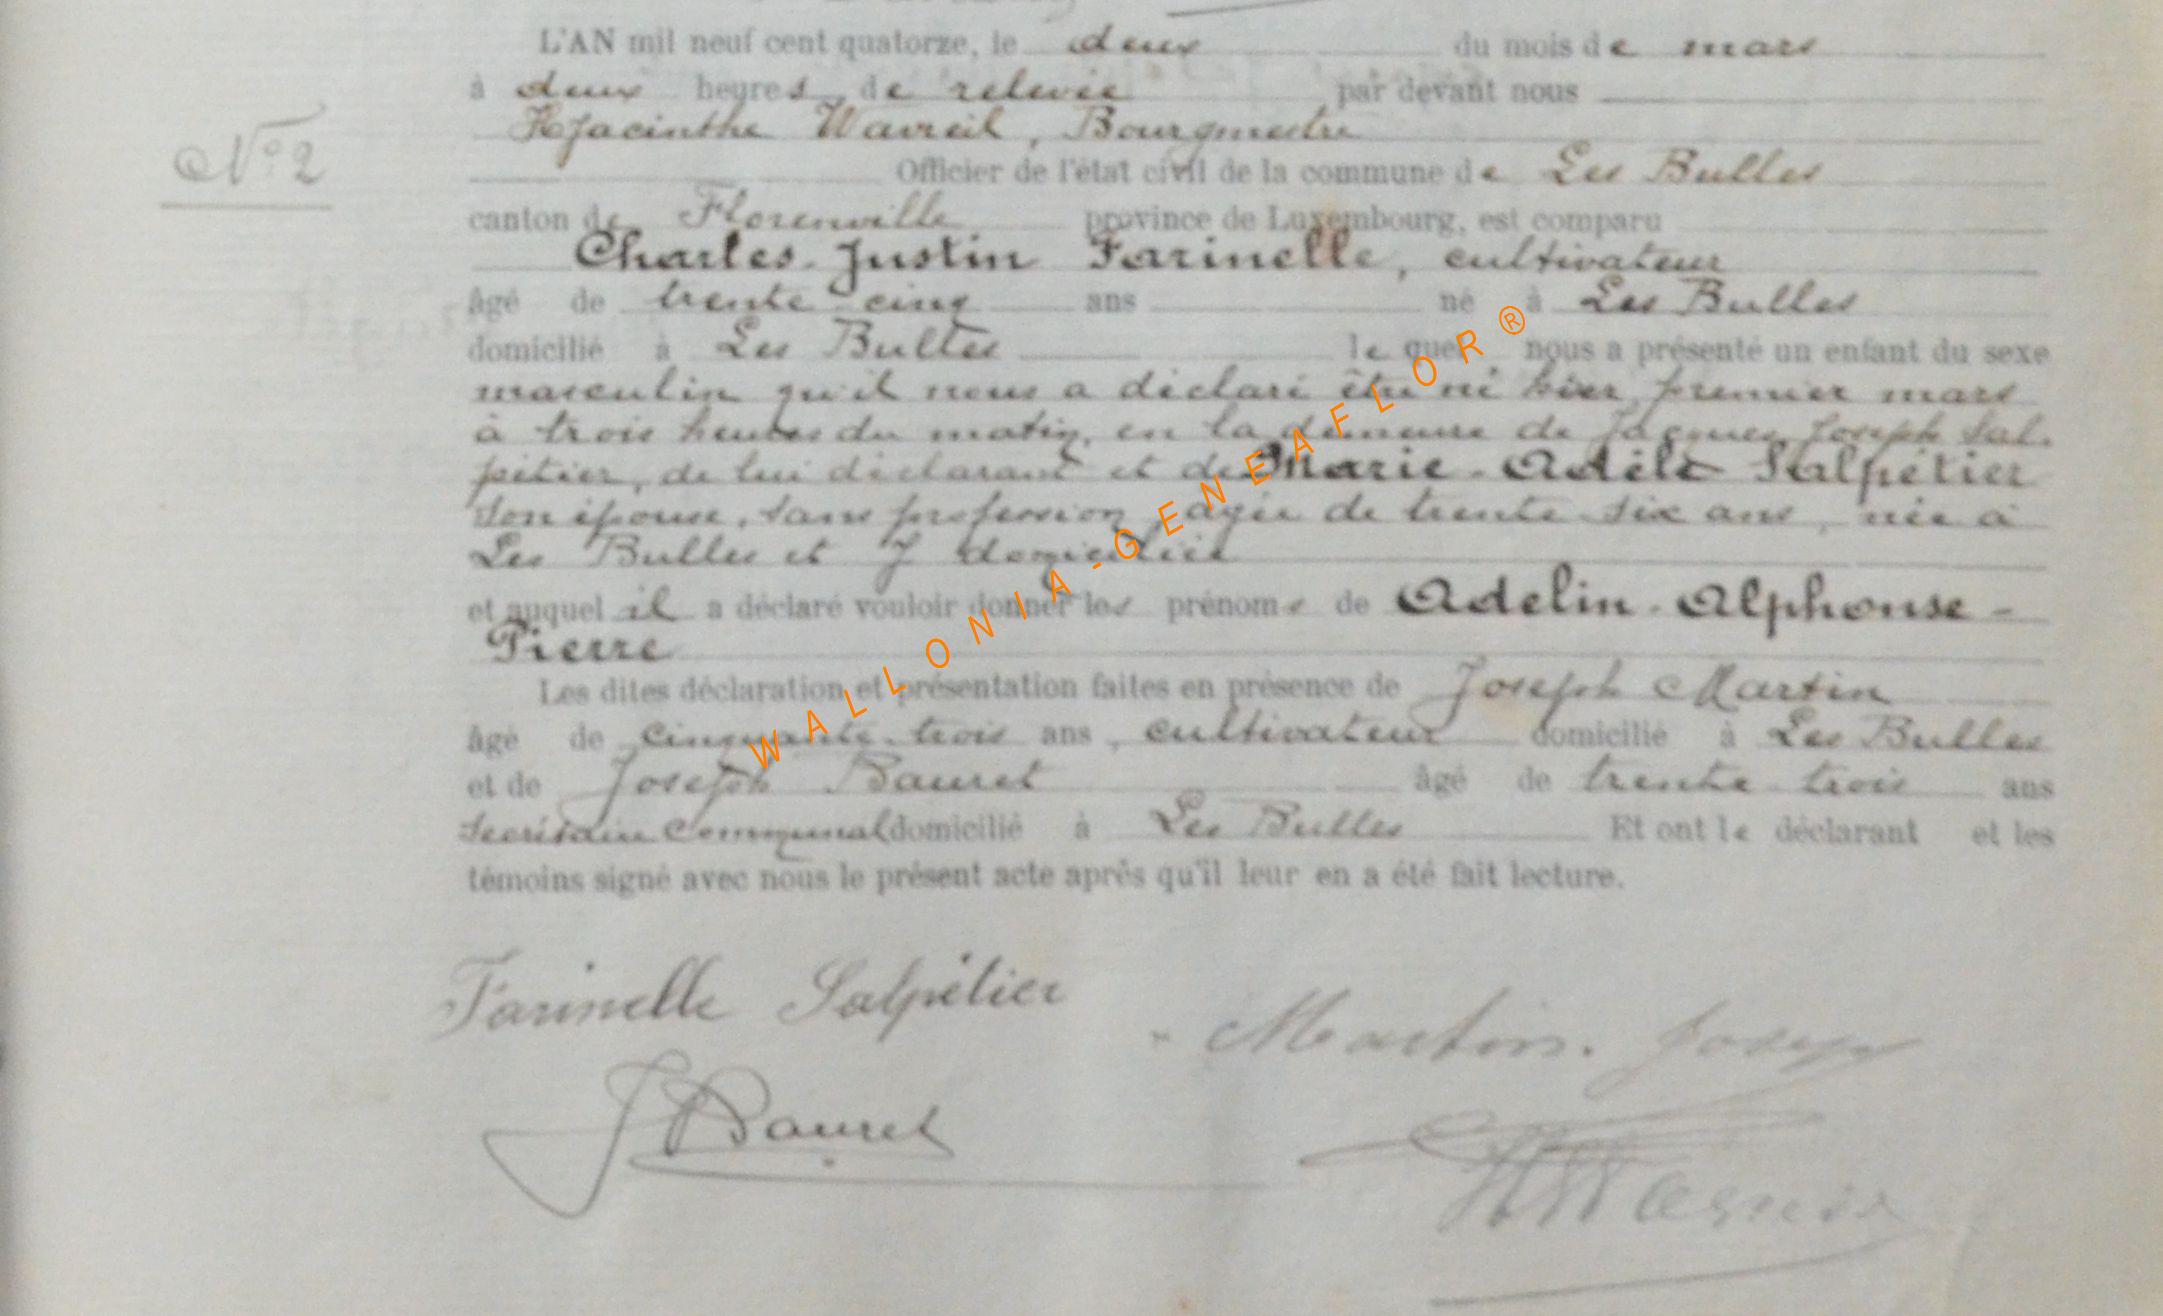 L'AN mil neuf cent quatorze, le deux du mois de mars
à deux heures de relevée par devant nous
Nº 2
Hyacinthe Wavreil, Bourgmestre
Officier de l'état civil de la commune de Les Bulles
canton de Florenville province de Luxembourg, est comparu
Charles-Justin Farinelle, cultivateur
âgé de trente-cinq ans né à Les Bulles
domicilié à Les Bulles lequel nous a présenté un enfant du sexe
masculin qu'il nous a déclaré être né hier premier mars
à trois heures du matin, en la demeure de Jacques Joseph Sal-
pétier, de lui déclarant et de Marie-Adèle Salpétier
son épouse, sans profession, âgée de trente six ans, née à
Les Bulles et y domiciliée
et auquel il a déclaré vouloir donner les prénoms de Adelin-Alphonse-
Pierre
Les dites déclaration et présentation faites en présence de Joseph Martin
âgé de cinquante-trois ans, cultivateur domicilié à Les Bulles
et de Joseph Bauret âgé de trente trois ans
Secrétaire Communal domicilié à Les Bulles Et ont le déclarant et les
témoins signé avec nous le présent acte après qu'il leur en a été fait lecture.
Farinelle Salpétier
Martin. Joseph
J Bauret
WALLONIA-GENEAFLOR®